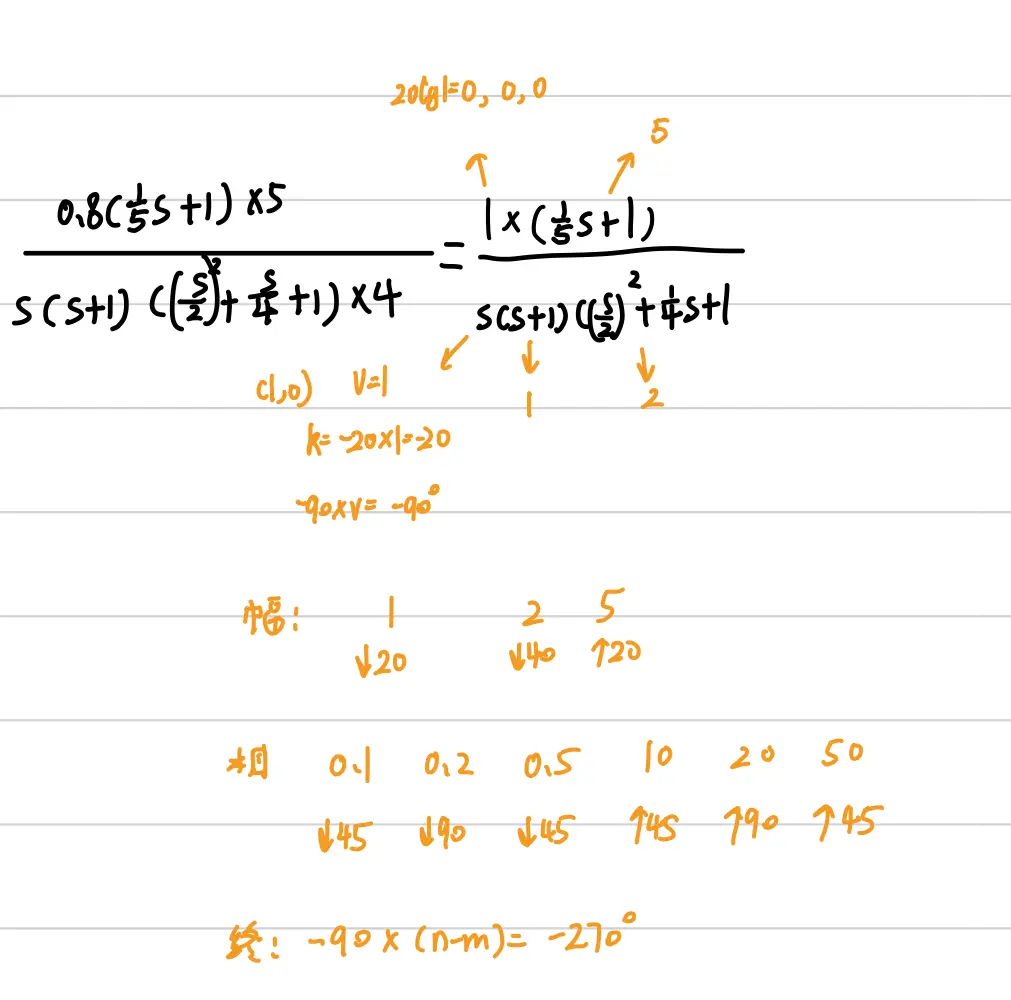 20lg1=0, 0, 0
5
0.8(1/5 s+1)×5 / s(s+1)((s/2)²+s/4+1)×4 = 1×(1/5 s+1) / s(s+1)((s/2)²+1/4 s+1
(1,0) V=1 1 2
k=-20×1=-20
-90×V=-90°
幅: 1 2 5
↓20 ↓40 ↑20
相 0.1 0.2 0.5 10 20 50
↓45 ↓90 ↓45 ↑45 ↑90 ↑45
终: -90×(n-m)=-270°